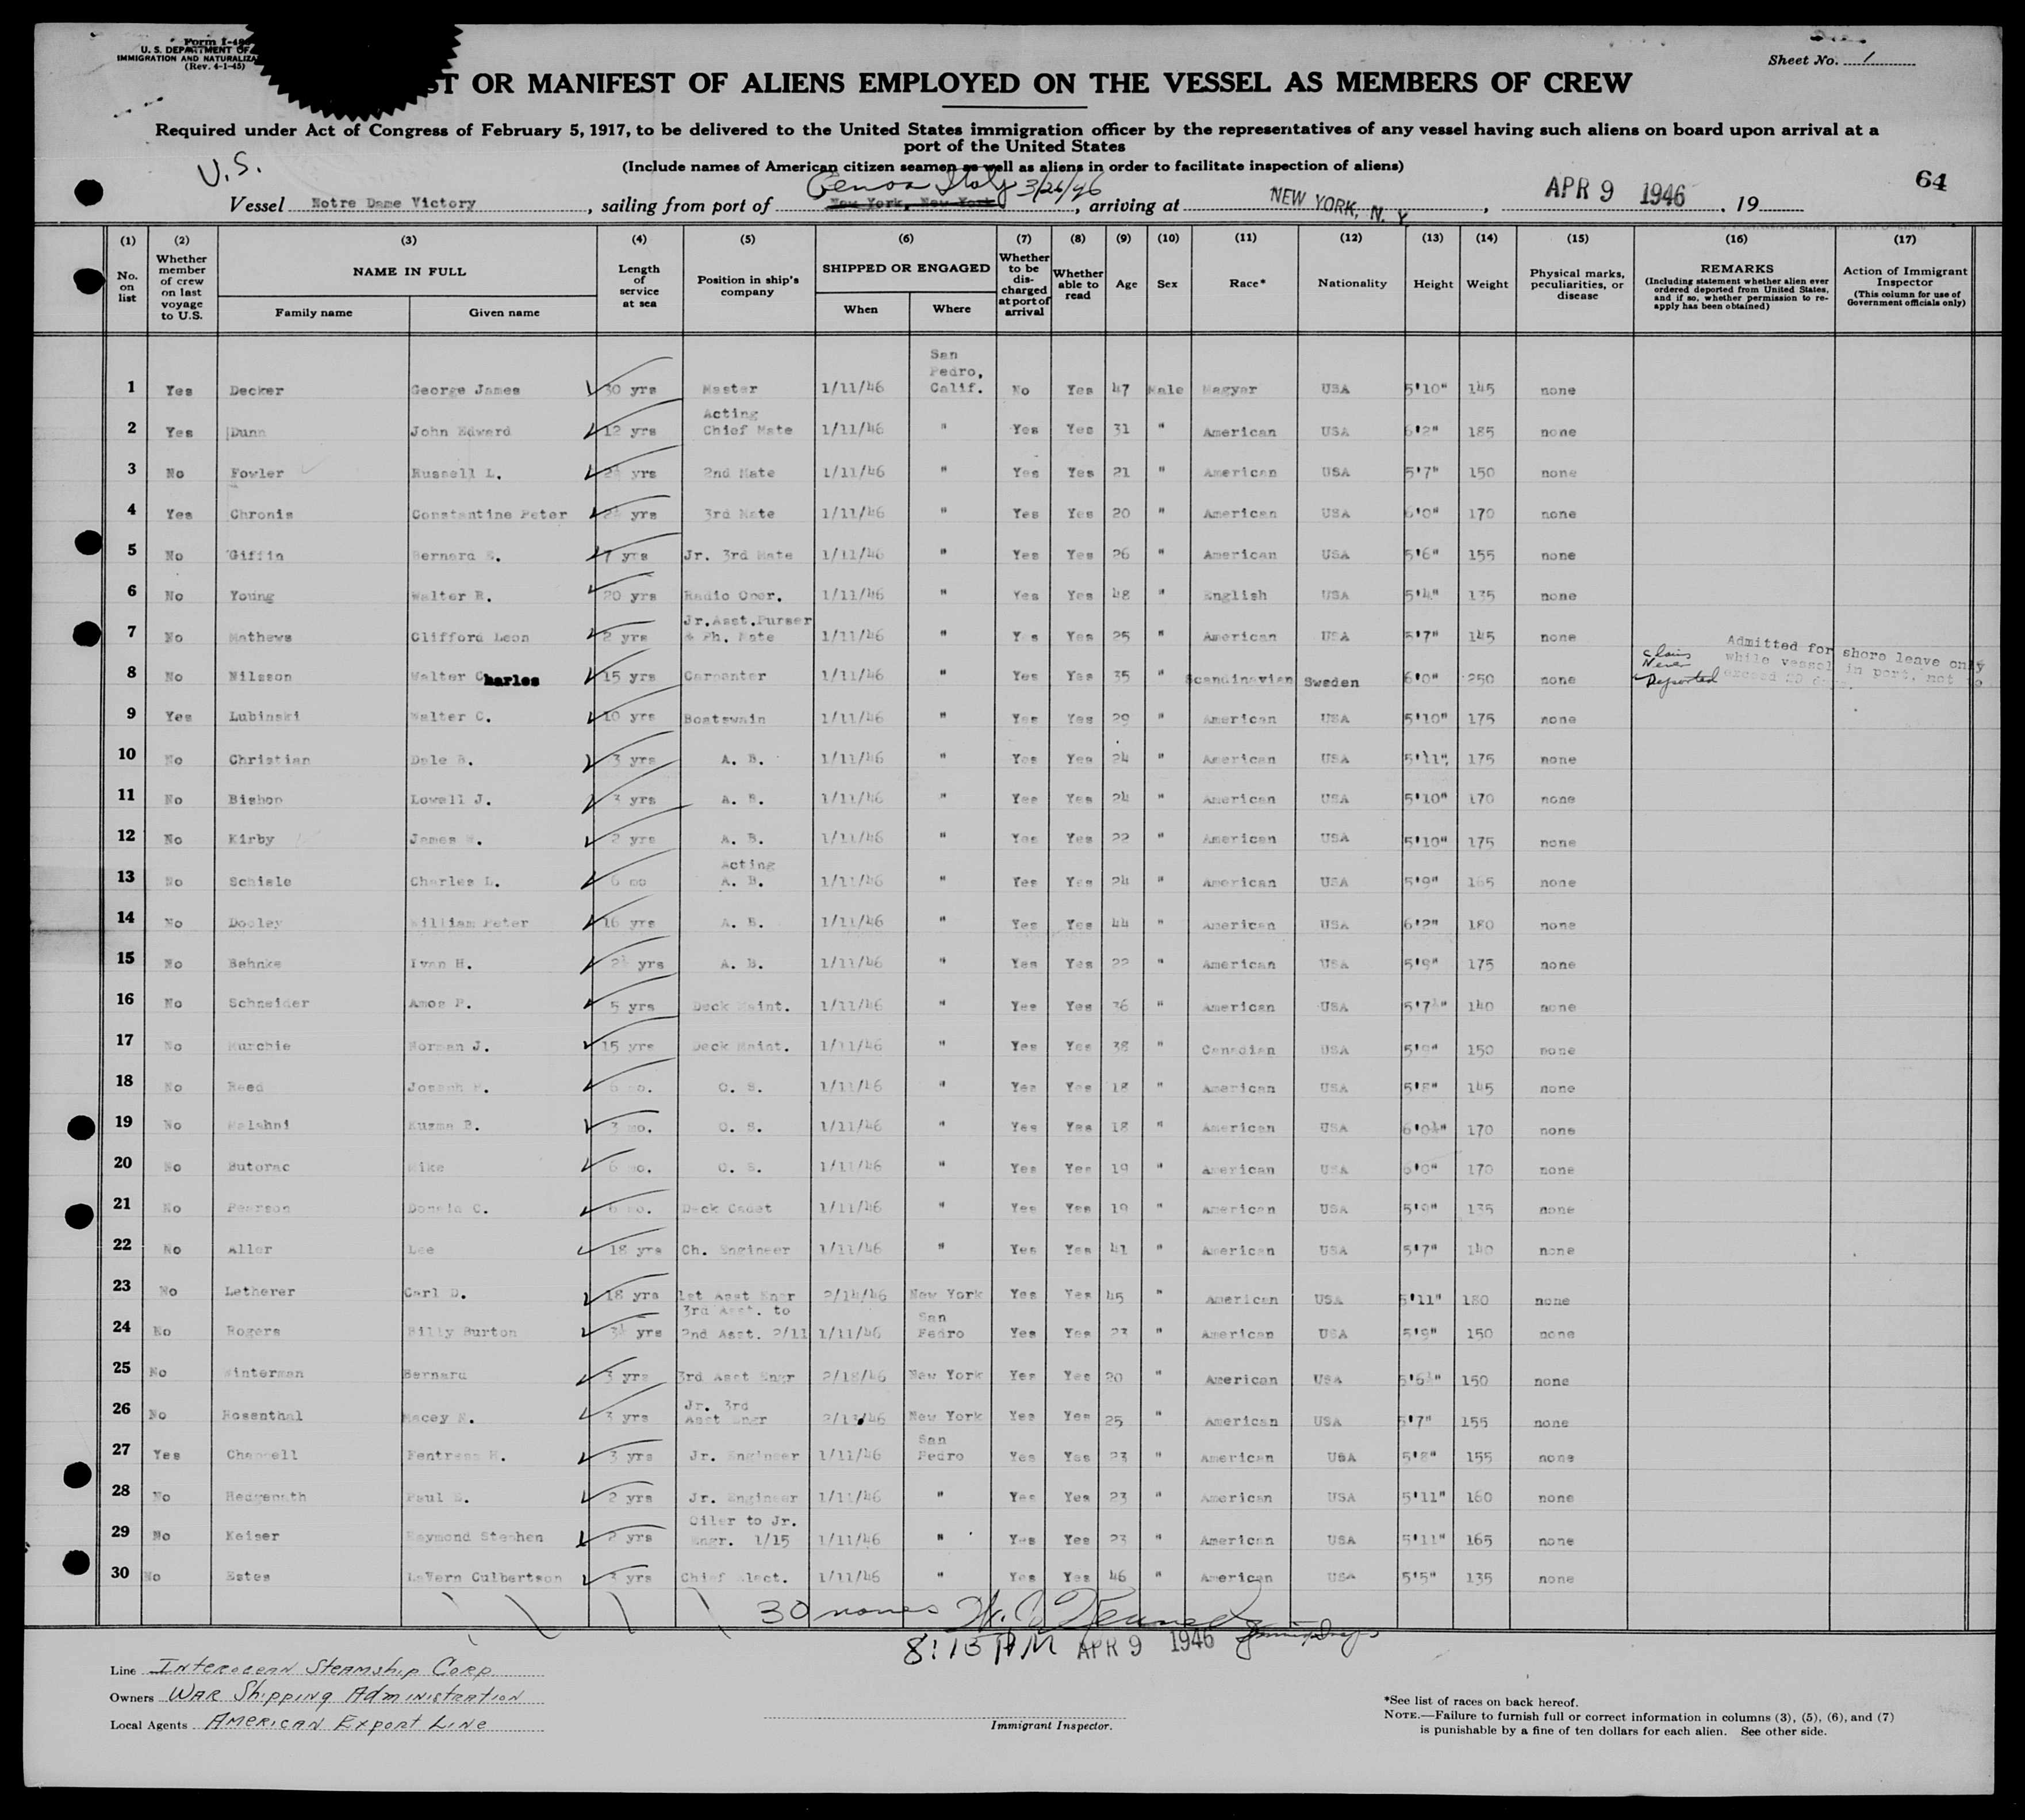 Form I-48
U. S. DEPARTMENT OF
IMMIGRATION AND NATURALIZA
(Rev. 4-1-45)
Sheet No. 1
ST OR MANIFEST OF ALIENS EMPLOYED ON THE VESSEL AS MEMBERS OF CREW
Required under Act of Congress of February 5, 1917, to be delivered to the United States immigration officer by the representatives of any vessel having such aliens on board upon arrival at a
port of the United States
(Include names of American citizen seamen as well as aliens in order to facilitate inspection of aliens)
U.S.
Genoa Italy 3/26/46
64
Vessel Notre Dame Victory, sailing from port of New York, New York, arriving at NEW YORK, N. Y, APR 9 1946, 19
(1) (2) (3) (4) (5) (6) (7) (8) (9) (10) (11) (12) (13) (14) (15) (16) (17)
No. on list
Whether member of crew on last voyage to U.S.
NAME IN FULL
Family name Given name
Length of service at sea
Position in ship's company
SHIPPED OR ENGAGED
When Where
Whether to be discharged at port of arrival
Whether able to read
Age Sex Race* Nationality Height Weight
Physical marks, peculiarities, or disease
REMARKS
(Including statement whether alien ever ordered deported from United States, and if so, whether permission to re-apply has been obtained)
Action of Immigrant Inspector
(This column for use of Government officials only)
1 Yes Decker George James 30 yrs Master 1/11/46 San Pedro, Calif. No Yes 47 Male Magyar USA 5'10" 145 none
2 Yes Dunn John Edward 12 yrs Acting Chief Mate 1/11/46 " Yes Yes 31 " American USA 6'2" 185 none
3 No Fowler Russell L. 2½ yrs 2nd Mate 1/11/46 " Yes Yes 21 " American USA 5'7" 150 none
4 Yes Chronis Constantine Peter 2½ yrs 3rd Mate 1/11/46 " Yes Yes 20 " American USA 6'0" 170 none
5 No Giffin Bernard 7 yrs Jr. 3rd Mate 1/11/46 " Yes Yes 26 " American USA 5'6" 155 none
6 No Young Walter R. 20 yrs Radio Oper. 1/11/46 " Yes Yes 48 " English USA 5'4" 135 none
7 No Mathews Clifford Leon 2 yrs Jr.Asst.Purser & Ph. Mate 1/11/46 " Yes Yes 25 " American USA 5'7" 145 none
8 No Nilsson Walter Charles 15 yrs Carpenter 1/11/46 " Yes Yes 35 " Scandinavian Sweden 6'0" 250 none Claims Never Deported Admitted for shore leave only while vessel in port, not to exceed 29 days.
9 Yes Lubinski Walter C. 10 yrs Boatswain 1/11/46 " Yes Yes 29 " American USA 5'10" 175 none
10 No Christian Dale B. 3 yrs A. B. 1/11/46 " Yes Yes 24 " American USA 5'11" 175 none
11 No Bishop Lowell J. 3 yrs A. B. 1/11/46 " Yes Yes 24 " American USA 5'10" 170 none
12 No Kirby James 2 yrs A. B. 1/11/46 " Yes Yes 22 " American USA 5'10" 175 none
13 No Schiele Charles L. 6 mo Acting A. B. 1/11/46 " Yes Yes 24 " American USA 5'9" 165 none
14 No Dooley William Peter 16 yrs A. B. 1/11/46 " Yes Yes 44 " American USA 6'2" 180 none
15 No Behnke Ivan H. 2½ yrs A. B. 1/11/46 " Yes Yes 22 " American USA 5'9" 175 none
16 No Schneider Amos P. 5 yrs Deck Maint. 1/11/46 " Yes Yes 36 " American USA 5'7½" 140 none
17 No Murchie Norman J. 15 yrs Deck Maint. 1/11/46 " Yes Yes 38 " Canadian USA 5'9" 150 none
18 No Reed Joseph 6 mo. O. S. 1/11/46 " Yes Yes 18 " American USA 5'8" 145 none
19 No Malahni Kuzma B. 3 mo. O. S. 1/11/46 " Yes Yes 18 " American USA 6'0½" 170 none
20 No Butorac Mike 6 mo. O. S. 1/11/46 " Yes Yes 19 " American USA 6'0" 170 none
21 No Pearson Donald C. 6 mo. Deck Cadet 1/11/46 " Yes Yes 19 " American USA 5'9" 135 none
22 No Aller Lee 18 yrs Ch. Engineer 1/11/46 " Yes Yes 41 " American USA 5'7" 140 none
23 No Letherer Carl D. 18 yrs 1st Asst Engr 2/14/46 New York Yes Yes 45 " American USA 5'11" 180 none
24 No Rogers Billy Burton 3½ yrs 3rd Asst. to 2nd Asst. 2/11 1/11/46 San Pedro Yes Yes 23 " American USA 5'9" 150 none
25 No Winterman Bernard 3 yrs 3rd Asst Engr 2/18/46 New York Yes Yes 20 " American USA 5'6½" 150 none
26 No Rosenthal Macey 3 yrs Jr. 3rd Asst Engr 2/13/46 New York Yes Yes 25 " American USA 5'7" 155 none
27 Yes Chappell Fentress H. 3 yrs Jr. Engineer 1/11/46 San Pedro Yes Yes 23 " American USA 5'8" 155 none
28 No Hedgepath Paul 2 yrs Jr. Engineer 1/11/46 " Yes Yes 23 " American USA 5'11" 160 none
29 No Keiser Raymond Stephen 2 yrs Oiler to Jr. Engr. 1/15 1/11/46 " Yes Yes 23 " American USA 5'11" 165 none
30 No Estes LaVern Culbertson 3 yrs Chief Elect. 1/11/46 " Yes Yes 46 " American USA 5'5" 135 none
30 names
8:15 PM APR 9 1946
Line Interocean Steamship Corp.
Owners War Shipping Administration
Local Agents American Export Line
Immigrant Inspector.
*See list of races on back hereof.
NOTE.—Failure to furnish full or correct information in columns (3), (5), (6), and (7)
is punishable by a fine of ten dollars for each alien. See other side.